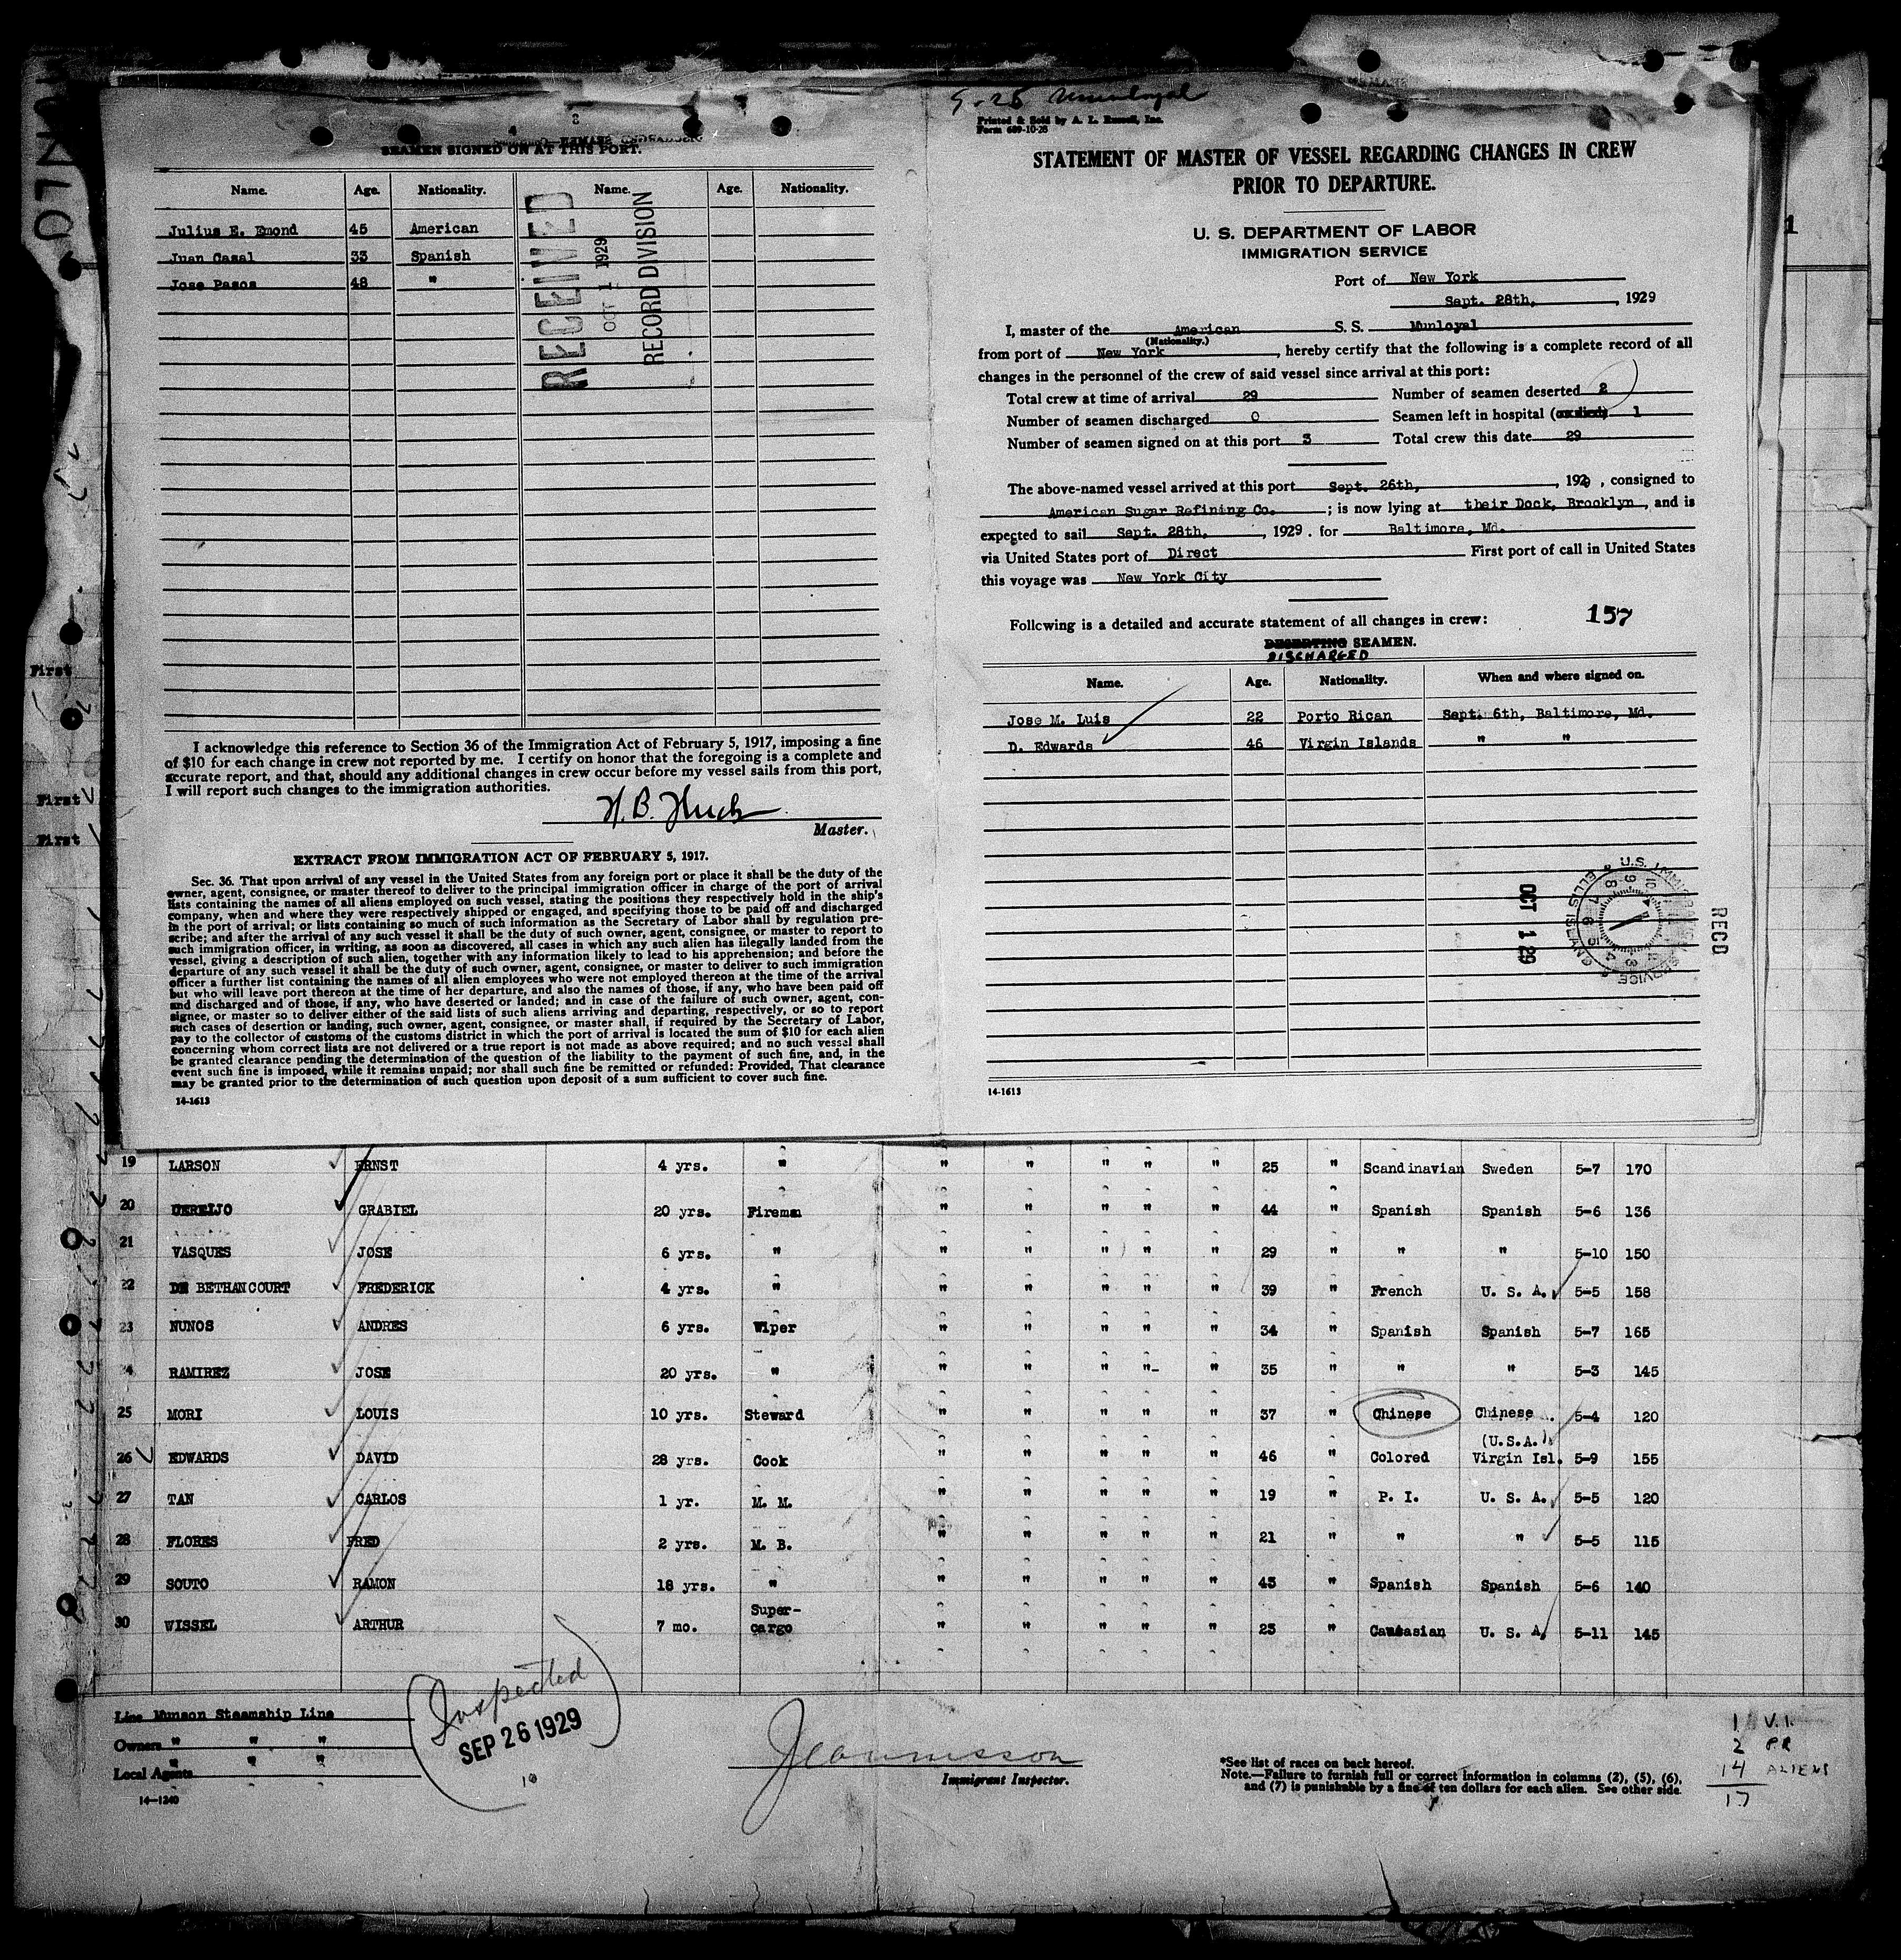 SEAMEN SIGNED ON AT THIS PORT.
Name. Age. Nationality. Name. Age. Nationality.
Julius E. Emond 45 American
Juan Casal 33 Spanish
Jose Pasos 48 "
RECEIVED
OCT 1 1929
RECORD DIVISION
I acknowledge this reference to Section 36 of the Immigration Act of February 5, 1917, imposing a fine
of $10 for each change in crew not reported by me. I certify on honor that the foregoing is a complete and
accurate report, and that, should any additional changes in crew occur before my vessel sails from this port,
I will report such changes to the immigration authorities.
Master.
EXTRACT FROM IMMIGRATION ACT OF FEBRUARY 5, 1917.
Sec. 36. That upon arrival of any vessel in the United States from any foreign port or place it shall be the duty of the
owner, agent, consignee, or master thereof to deliver to the principal immigration officer in charge of the port of arrival
lists containing the names of all aliens employed on such vessel, stating the positions they respectively hold in the ship's
company, when and where they were respectively shipped or engaged, and specifying those to be paid off and discharged
in the port of arrival; or lists containing so much of such information as the Secretary of Labor shall by regulation pre-
scribe; and after the arrival of any such vessel it shall be the duty of such owner, agent, consignee, or master to report to
such immigration officer, in writing, as soon as discovered, all cases in which any such alien has illegally landed from the
vessel, giving a description of such alien, together with any information likely to lead to his apprehension; and before the
departure of any such vessel it shall be the duty of such owner, agent, consignee, or master to deliver to such immigration
officer a further list containing the names of all alien employees who were not employed thereon at the time of the arrival
but who will leave port thereon at the time of her departure, and also the names of those, if any, who have been paid off
and discharged and of those, if any, who have deserted or landed; and in case of the failure of such owner, agent, con-
signee, or master so to deliver either of the said lists of such aliens arriving and departing, respectively, or so to report
such cases of desertion or landing, such owner, agent, consignee, or master shall, if required by the Secretary of Labor,
pay to the collector of customs of the customs district in which the port of arrival is located the sum of $10 for each alien
concerning whom correct lists are not delivered or a true report is not made as above required; and no such vessel shall
be granted clearance pending the determination of the question of the liability to the payment of such fine, and, in the
event such fine is imposed, while it remains unpaid; nor shall such fine be remitted or refunded: Provided, That clearance
may be granted prior to the determination of such question upon deposit of a sum sufficient to cover such fine.
14-1613
Printed & Sold by A. L. Russell, Inc.
Form 689-10-28
STATEMENT OF MASTER OF VESSEL REGARDING CHANGES IN CREW
PRIOR TO DEPARTURE.
U. S. DEPARTMENT OF LABOR
IMMIGRATION SERVICE
Port of New York
Sept. 28th, , 1929
I, master of the American S. S. Munloyal
(Nationality.)
from port of New York , hereby certify that the following is a complete record of all
changes in the personnel of the crew of said vessel since arrival at this port:
Total crew at time of arrival 29 Number of seamen deserted 2
Number of seamen discharged 0 Seamen left in hospital (or died) 1
Number of seamen signed on at this port 3 Total crew this date 29
The above-named vessel arrived at this port Sept. 26th, , 1929 , consigned to
American Sugar Refining Co. ; is now lying at their Dock, Brooklyn , and is
expected to sail Sept. 28th, , 1929 . for Baltimore, Md.
via United States port of Direct First port of call in United States
this voyage was New York City
157
Following is a detailed and accurate statement of all changes in crew:
DESERTING SEAMEN.
DISCHARGED
Name. Age. Nationality. When and where signed on.
Jose M. Luis 22 Porto Rican Sept. 6th, Baltimore, Md.
D. Edwards 46 Virgin Islands " "
RECD
OCT 1 29
U.S. IMMIG SERVICE ELLIS ISLAND
14-1613
First
First
First
19 LARSON ERNST 4 yrs. " " " " " " 25 " Scandinavian Sweden 5-7 170
20 GRABIEL 20 yrs. Fireman " " " " " 44 " Spanish Spanish 5-6 136
21 VASQUES JOSE 6 yrs. " " " " " " 29 " " " 5-10 150
22 DE BETHANCOURT FREDERICK 4 yrs. " " " " " " 39 " French U. S. A. 5-5 158
23 NUNOS ANDRES 6 yrs. Wiper " " " " " 34 " Spanish Spanish 5-7 165
24 RAMIREZ JOSE 20 yrs. " " " " " " 35 " " " 5-3 145
25 MORI LOUIS 10 yrs. Steward " " " " " 37 " Chinese Chinese 5-4 120
26 EDWARDS DAVID 28 yrs. Cook " " " " " 46 " Colored (U.S.A.) Virgin Isl. 5-9 155
27 TAN CARLOS 1 yr. M. M. " " " " " 19 " P. I. U. S. A. 5-5 120
28 FLORES FRED 2 yrs. M. B. " " " " " 21 " " " 5-5 115
29 SOUTO RAMON 18 yrs. " " " " " " 43 " Spanish Spanish 5-6 140
30 WISSEL ARTHUR 7 mo. Super-cargo " " " " " 23 " Caucasian U. S. A. 5-11 145
Line Munson Steamship Line
Owners " " "
Local Agents " " "
14-1240
Inspected
SEP 26 1929
Immigrant Inspector.
*See list of races on back hereof.
Note.—Failure to furnish full or correct information in columns (2), (5), (6),
and (7) is punishable by a fine of ten dollars for each alien. See other side.
1 V.I.
2 P.R
14 ALIENS
17